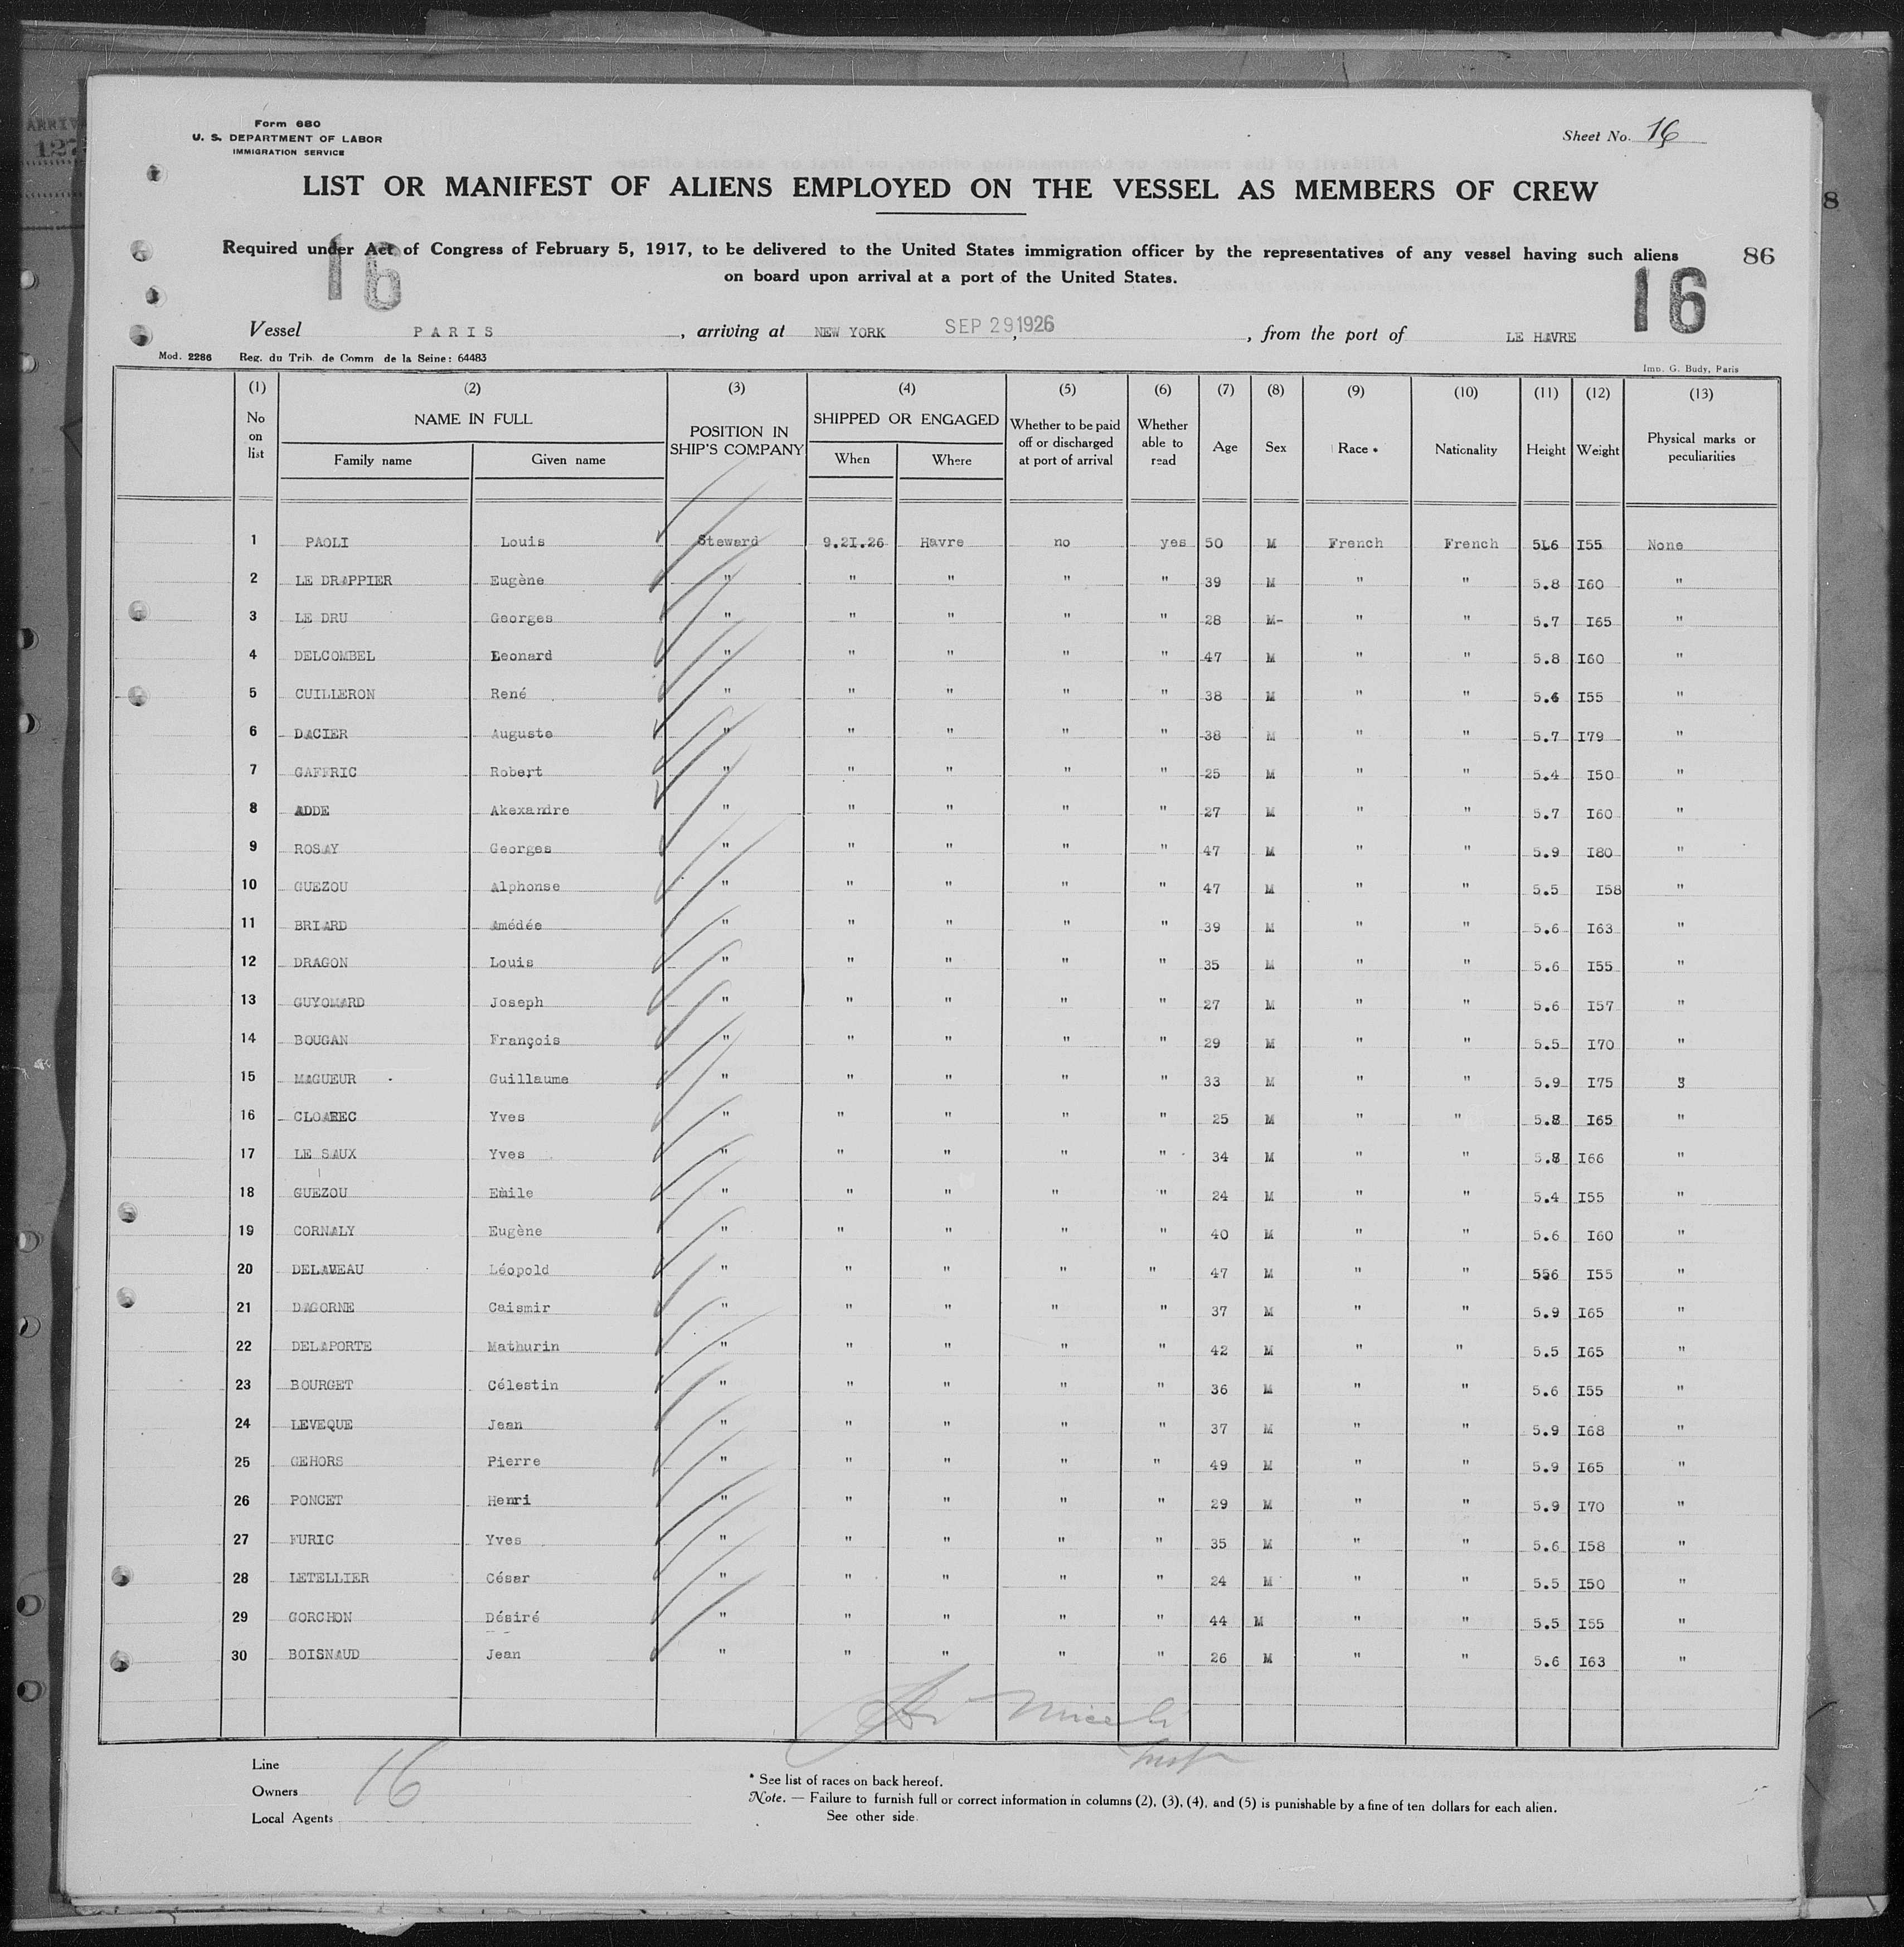 Form 680
U. S. DEPARTMENT OF LABOR
IMMIGRATION SERVICE
Sheet No. 16
LIST OR MANIFEST OF ALIENS EMPLOYED ON THE VESSEL AS MEMBERS OF CREW
Required under Act of Congress of February 5, 1917, to be delivered to the United States immigration officer by the representatives of any vessel having such aliens
on board upon arrival at a port of the United States.
86
16
16
Vessel PARIS, arriving at NEW YORK SEP 29 1926, from the port of LE HAVRE
Mod. 2286 Reg. du Trib. de Comm de la Seine: 64483
Imp. G. Budy, Paris
(1) (2) (3) (4) (5) (6) (7) (8) (9) (10) (11) (12) (13)
No on list NAME IN FULL Family name Given name POSITION IN SHIP'S COMPANY SHIPPED OR ENGAGED When Where Whether to be paid off or discharged at port of arrival Whether able to read Age Sex Race * Nationality Height Weight Physical marks or peculiarities
1 PAOLI Louis Steward 9.2I.26 Havre no yes 50 M French French 5L6 I55 None
2 LE DRAPPIER Eugène " " " " " 39 M " " 5.8 I60 "
3 LE DRU Georges " " " " " 28 M- " " 5.7 I65 "
4 DELCOMBEL Leonard " " " " " 47 M " " 5.8 I60 "
5 CUILLERON René " " " " " 38 M " " 5.6 I55 "
6 DACIER Auguste " " " " " 38 M " " 5.7 I79 "
7 GAFFRIC Robert " " " " " 25 M " " 5.4 I50 "
8 ADDE Akexandre " " " " " 27 M " " 5.7 I60 "
9 ROSAY Georges " " " " " 47 M " " 5.9 I80 "
10 GUEZOU Alphonse " " " " " 47 M " " 5.5 I58 "
11 BRIARD Amédée " " " " " 39 M " " 5.6 I63 "
12 DRAGON Louis " " " " " 35 M " " 5.6 I55 "
13 GUYOMARD Joseph " " " " " 27 M " " 5.6 I57 "
14 BOUGAN François " " " " " 29 M " " 5.5 I70 "
15 MAGUEUR Guillaume " " " " " 33 M " " 5.9 I75 3
16 CLOAREC Yves " " " " " 25 M " " 5.8 I65 "
17 LE SAUX Yves " " " " " 34 M " " 5.8 I66 "
18 GUEZOU Emile " " " " " 24 M " " 5.4 I55 "
19 CORNALY Eugène " " " " " 40 M " " 5.6 I60 "
20 DELAVEAU Léopold " " " " " 47 M " " 556 I55 "
21 DAGORNE Caismir " " " " " 37 M " " 5.9 I65 "
22 DELAPORTE Mathurin " " " " " 42 M " " 5.5 I65 "
23 BOURGET Célestin " " " " " 36 M " " 5.6 I55 "
24 LEVEQUE Jean " " " " " 37 M " " 5.9 I68 "
25 GEHORS Pierre " " " " " 49 M " " 5.9 I65 "
26 PONCET Henri " " " " " 29 M " " 5.9 I70 "
27 FURIC Yves " " " " " 35 M " " 5.6 I58 "
28 LETELLIER César " " " " " 24 M " " 5.5 I50 "
29 GORCHON Désiré " " " " " 44 M " " 5.5 I55 "
30 BOISNAUD Jean " " " " " 26 M " " 5.6 I63 "
Line
Owners 16
Local Agents
* See list of races on back hereof.
Note. — Failure to furnish full or correct information in columns (2), (3), (4), and (5) is punishable by a fine of ten dollars for each alien.
See other side.